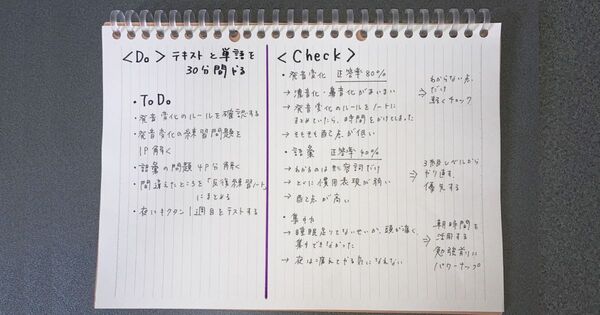 <Do> テキストと単語を
30分間やる
・ToDo
・発音変化のルールを確認する
・発音変化の練習問題を
1P解く
・語彙の問題 4P分解く
・間違えたところを「反復練習ノート」
にまとめる
・夜にキクタン1週目をテストする
<Check>
・発音変化 正答率80%
→ 濃音化・鼻音化があいまい
→ 発音変化のルールをノートに
まとめていたら、時間をかけてしまった
→ そもそも配点が低い
⇒ わからない点
だけ
軽くチェック
・語彙 正答率40%
→ わかるのは形容詞だけ
→ とくに慣用表現が弱い
→ 配点が高い
⇒ レベルから
やり直す。
優先する
・集中力
→ 睡眠足りてないせいか、頭が痛く、
集中できなかった
→ 夜は疲れてやる気になれない
⇒ 朝時間を
活用する
勉強前に
パワーナップ